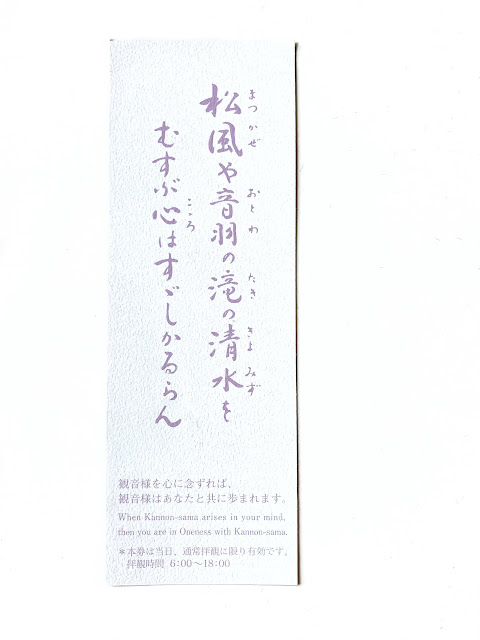 松風や音羽の滝の清水を
まつかぜ おとわ たき きよみず
むすぶ心はすゞしかるらん
こゝろ
観音様を心に念ずれば、
観音様はあなたと共に歩まれます。
When Kannon-sama arises in your mind,
then you are in Oneness with Kannon-sama.
＊本券は当日、通常拝観に限り有効です。
拝観時間 6:00〜18:00